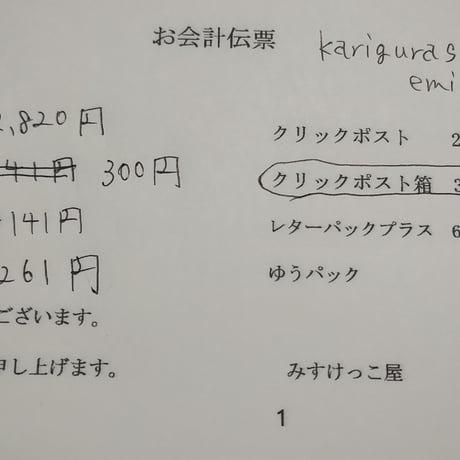 お会計伝票
kariguras
emi
,820円
300円
141円
261円
ございます。
申し上げます。
クリックポスト 2
クリックポスト箱 3
レターパックプラス 6
ゆうパック
みすけっこ屋
1